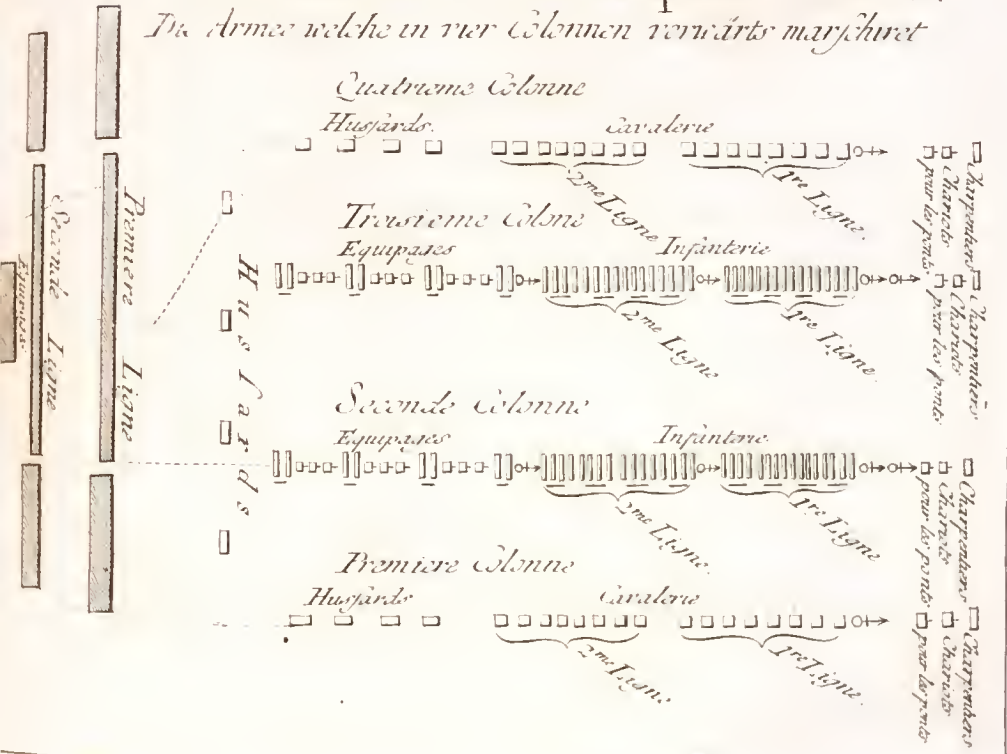 Die Armee welche in vier Colonnen vorwärts marschiret
Quatrieme Colonne
Hussards. Cavalerie
2me Ligne 1re Ligne.
Charpentiers
Chariots
pour les ponts
Troisieme Colone
Equipages Infanterie
2me Ligne 1re Ligne.
Charpentiers
Chariots
pour les ponts
Seconde Colonne
Equipages Infanterie
2me Ligne. 1re Ligne
Charpentiers
Chariots
pour les ponts
Premiere Colonne
Hussards Cavalerie
2me Ligne 1re Ligne.
Charpentiers
Chariots
pour les ponts
Hussards
Premiere Ligne
Seconde Ligne